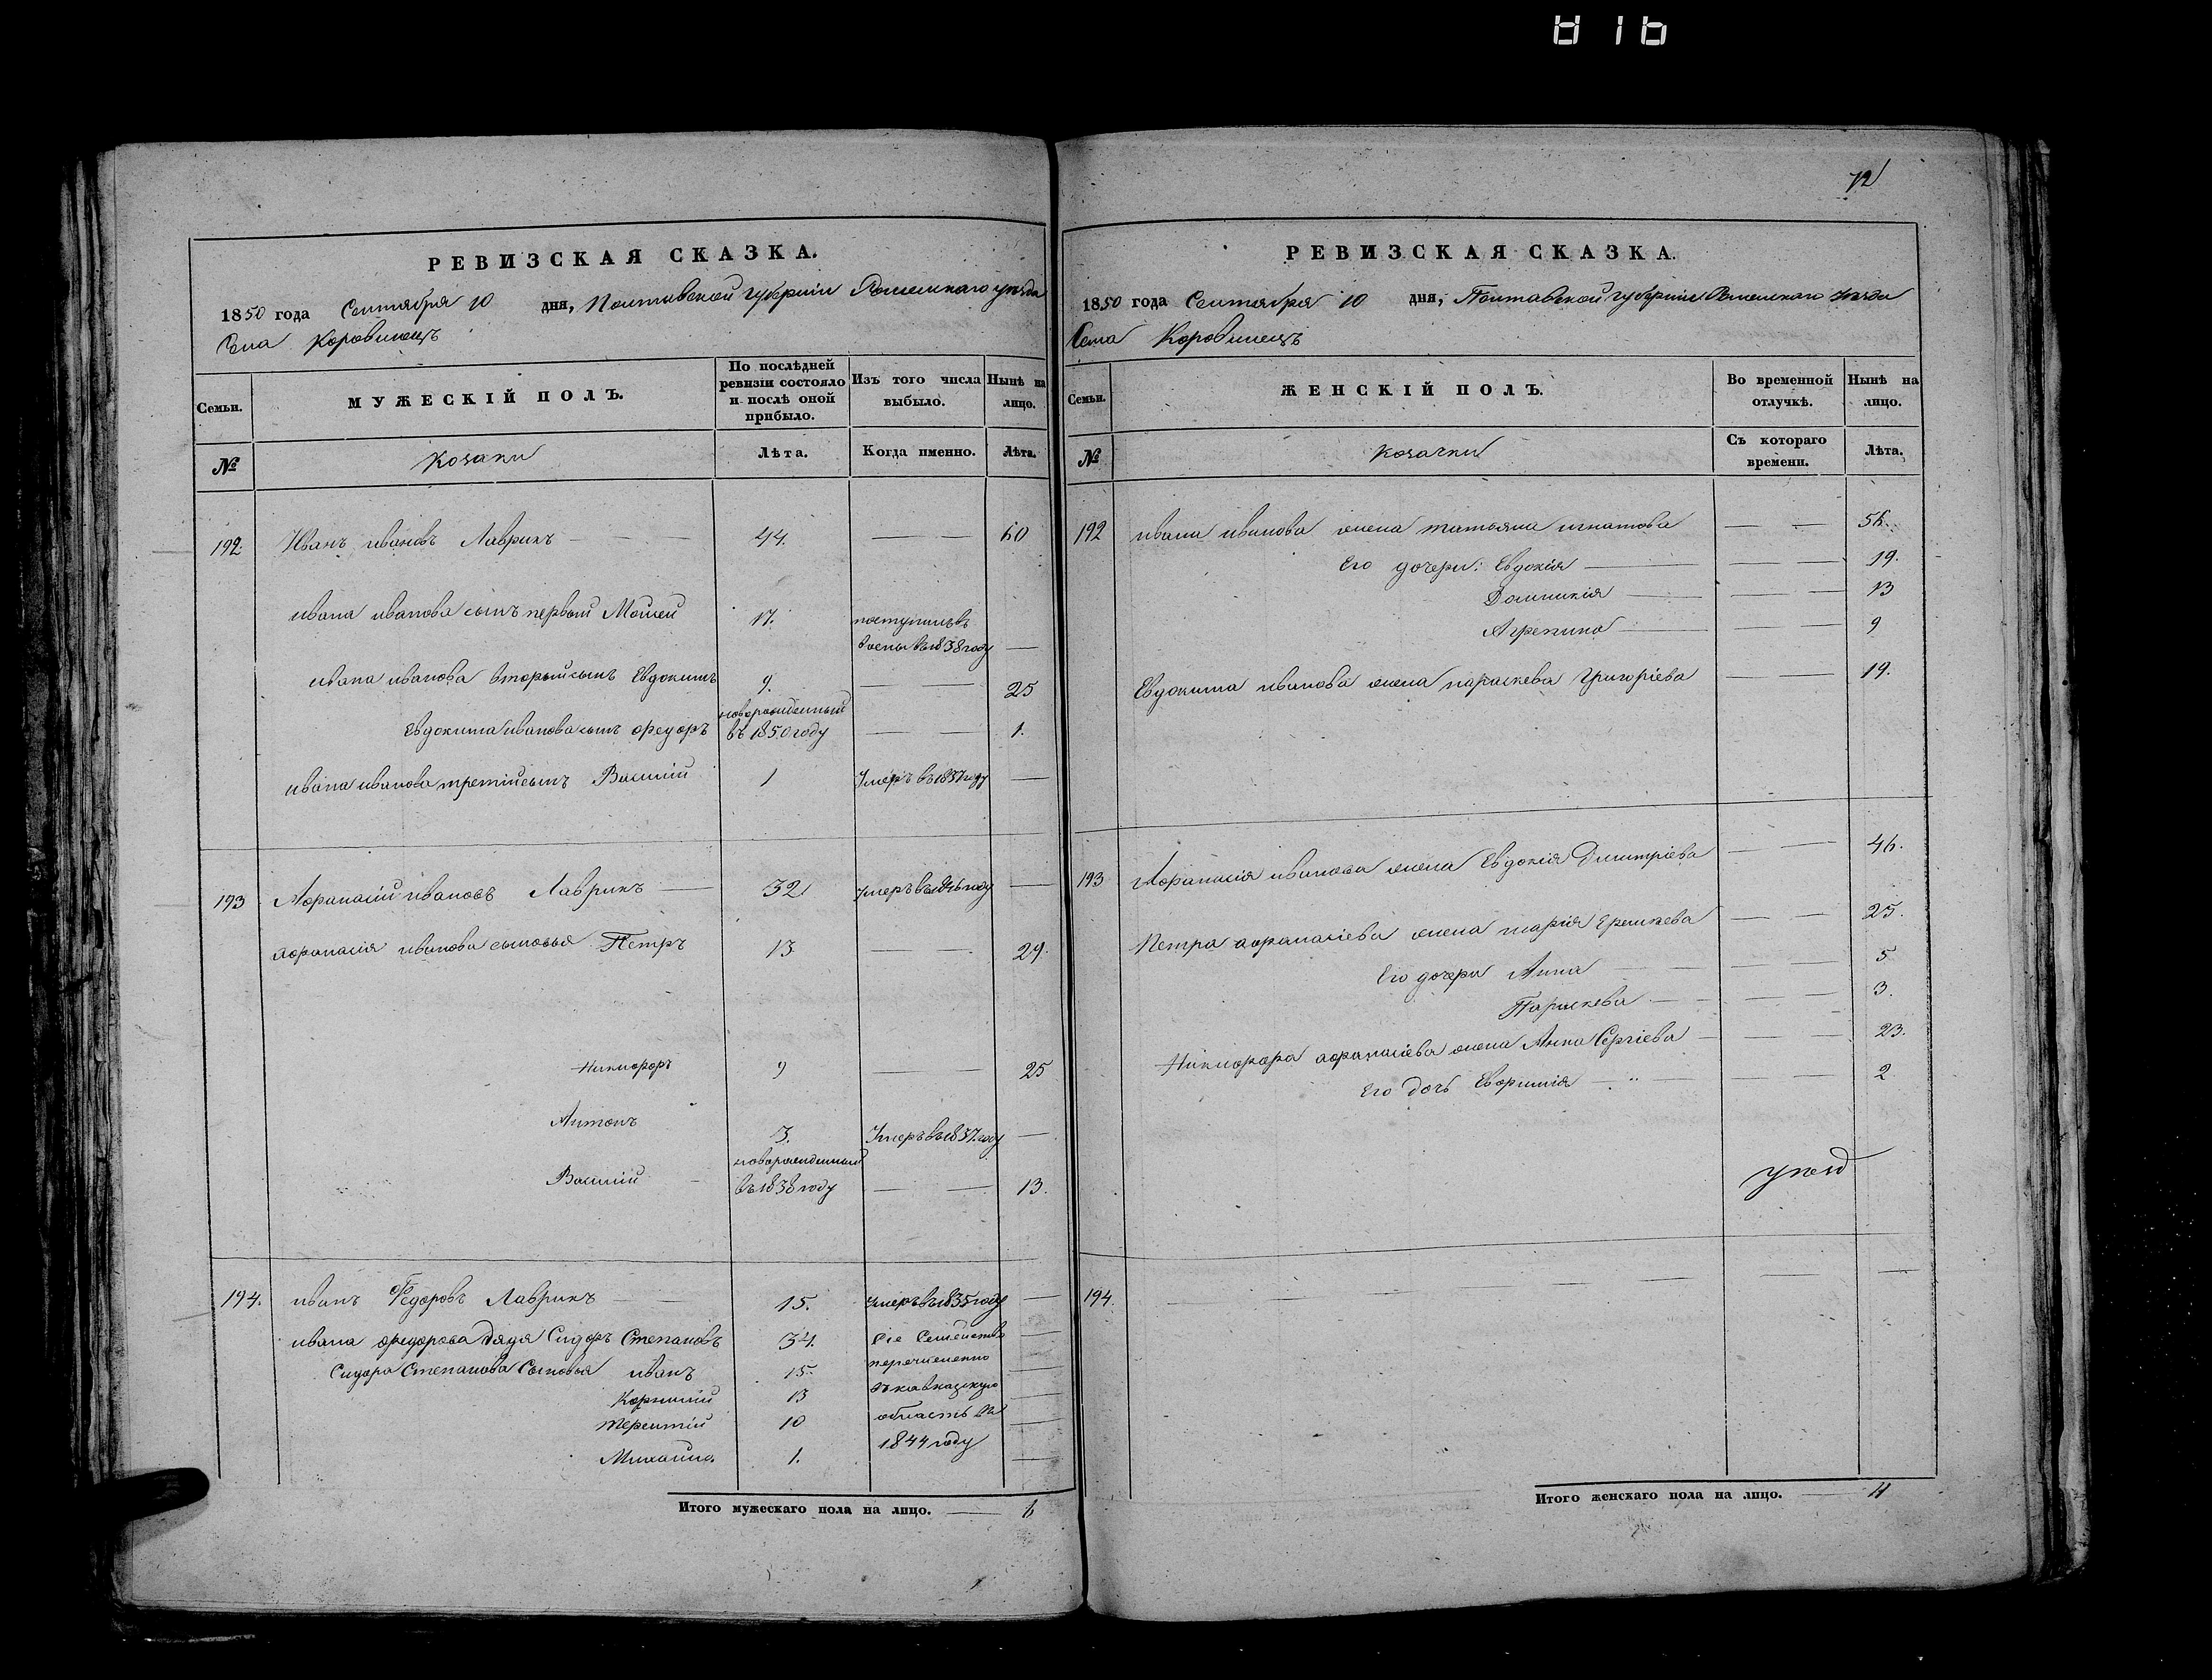 816
РЕВИЗСКАЯ СКАЗКА.
1850 года Сентября 10 дня, Полтавской губерніи Роменскаго уѣзда
Села Коровинецъ
Семьи. МУЖЕСКІЙ ПОЛЪ. По послѣдней ревизіи состояло и послѣ оной прибыло. Изъ того числа выбыло. Нынѣ на лицо.
№ Козаки Лѣта. Когда именно. Лѣта.
192. Иванъ ивановъ Лаврикъ 44. 60
ивана иванова сынъ первый Мойсей 17. поступилъ въ военн въ 1838 году
ивана иванова вторый сынъ Евдокимъ 9. 25
Евдокима иванова сынъ федоръ новорожденный въ 1850 году 1.
ивана иванова третій сынъ Василій 1 Умеръ въ 1837 году
193 Афанасій ивановъ Лаврикъ 32 Умеръ въ 1846 году
афанасія иванова сыновья Петръ 13 29.
Никифоръ 9 25
Антонъ 3. Умеръ въ 1837 году
Василій новорожденный въ 1838 году 13.
194. иванъ Федоровъ Лаврикъ 15. Умеръ въ 1835 году
ивана федорова дядя Сидоръ Степановъ 34. Сіе Семейство
Сидора Степанова Сыновья иванъ 15. перечисленно
Корнилій 13 въ кавказскую
терентій 10 область въ
Михайла 1. 1844 году
Итого мужескаго пола на лицо. 6
72
РЕВИЗСКАЯ СКАЗКА.
1850 года Сентября 10 дня, Полтавской губерніи Роменскаго уѣзда
Села Коровинецъ
Семьи. ЖЕНСКІЙ ПОЛЪ. Во временной отлучкѣ. Нынѣ на лицо.
№ Козачки Съ котораго времени. Лѣта.
192 ивана иванова жена татьяна игнатова 56.
Его дочери: Евдокія 19.
Домникія 13
Агрепина 9
Евдокима иванова жена параскева Григоріева 19.
193 Афанасія иванова жена Евдокія Димитріева 46.
Петра афанасіева жена марія Еремѣева 25.
Его дочери Анна 5
Параскева 3.
Никифора афанасіева жена Анна Сергіева 23.
Его дочь Евфимія 2
194.
Итого женскаго пола на лицо. 11